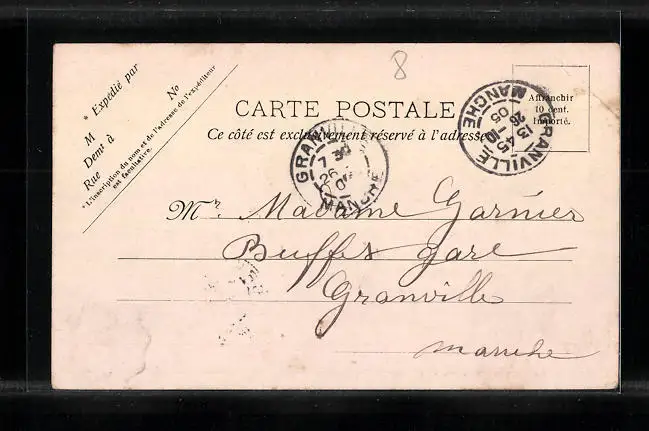 8
* Expédié par
M No
Demt à
Rue
* L'inscription du nom et de l'adresse de l'expéditeur
est facultative.
CARTE POSTALE
Ce côté est exclusivement réservé à l'adresse
Affranchir
10 cent.
Importé.
GRANVILLE
7 30
26
MANCHE
GRANVILLE
13 45
26 -10
05
MANCHE
Mr. Madame Garnier
Buffet gare
Granville
manche